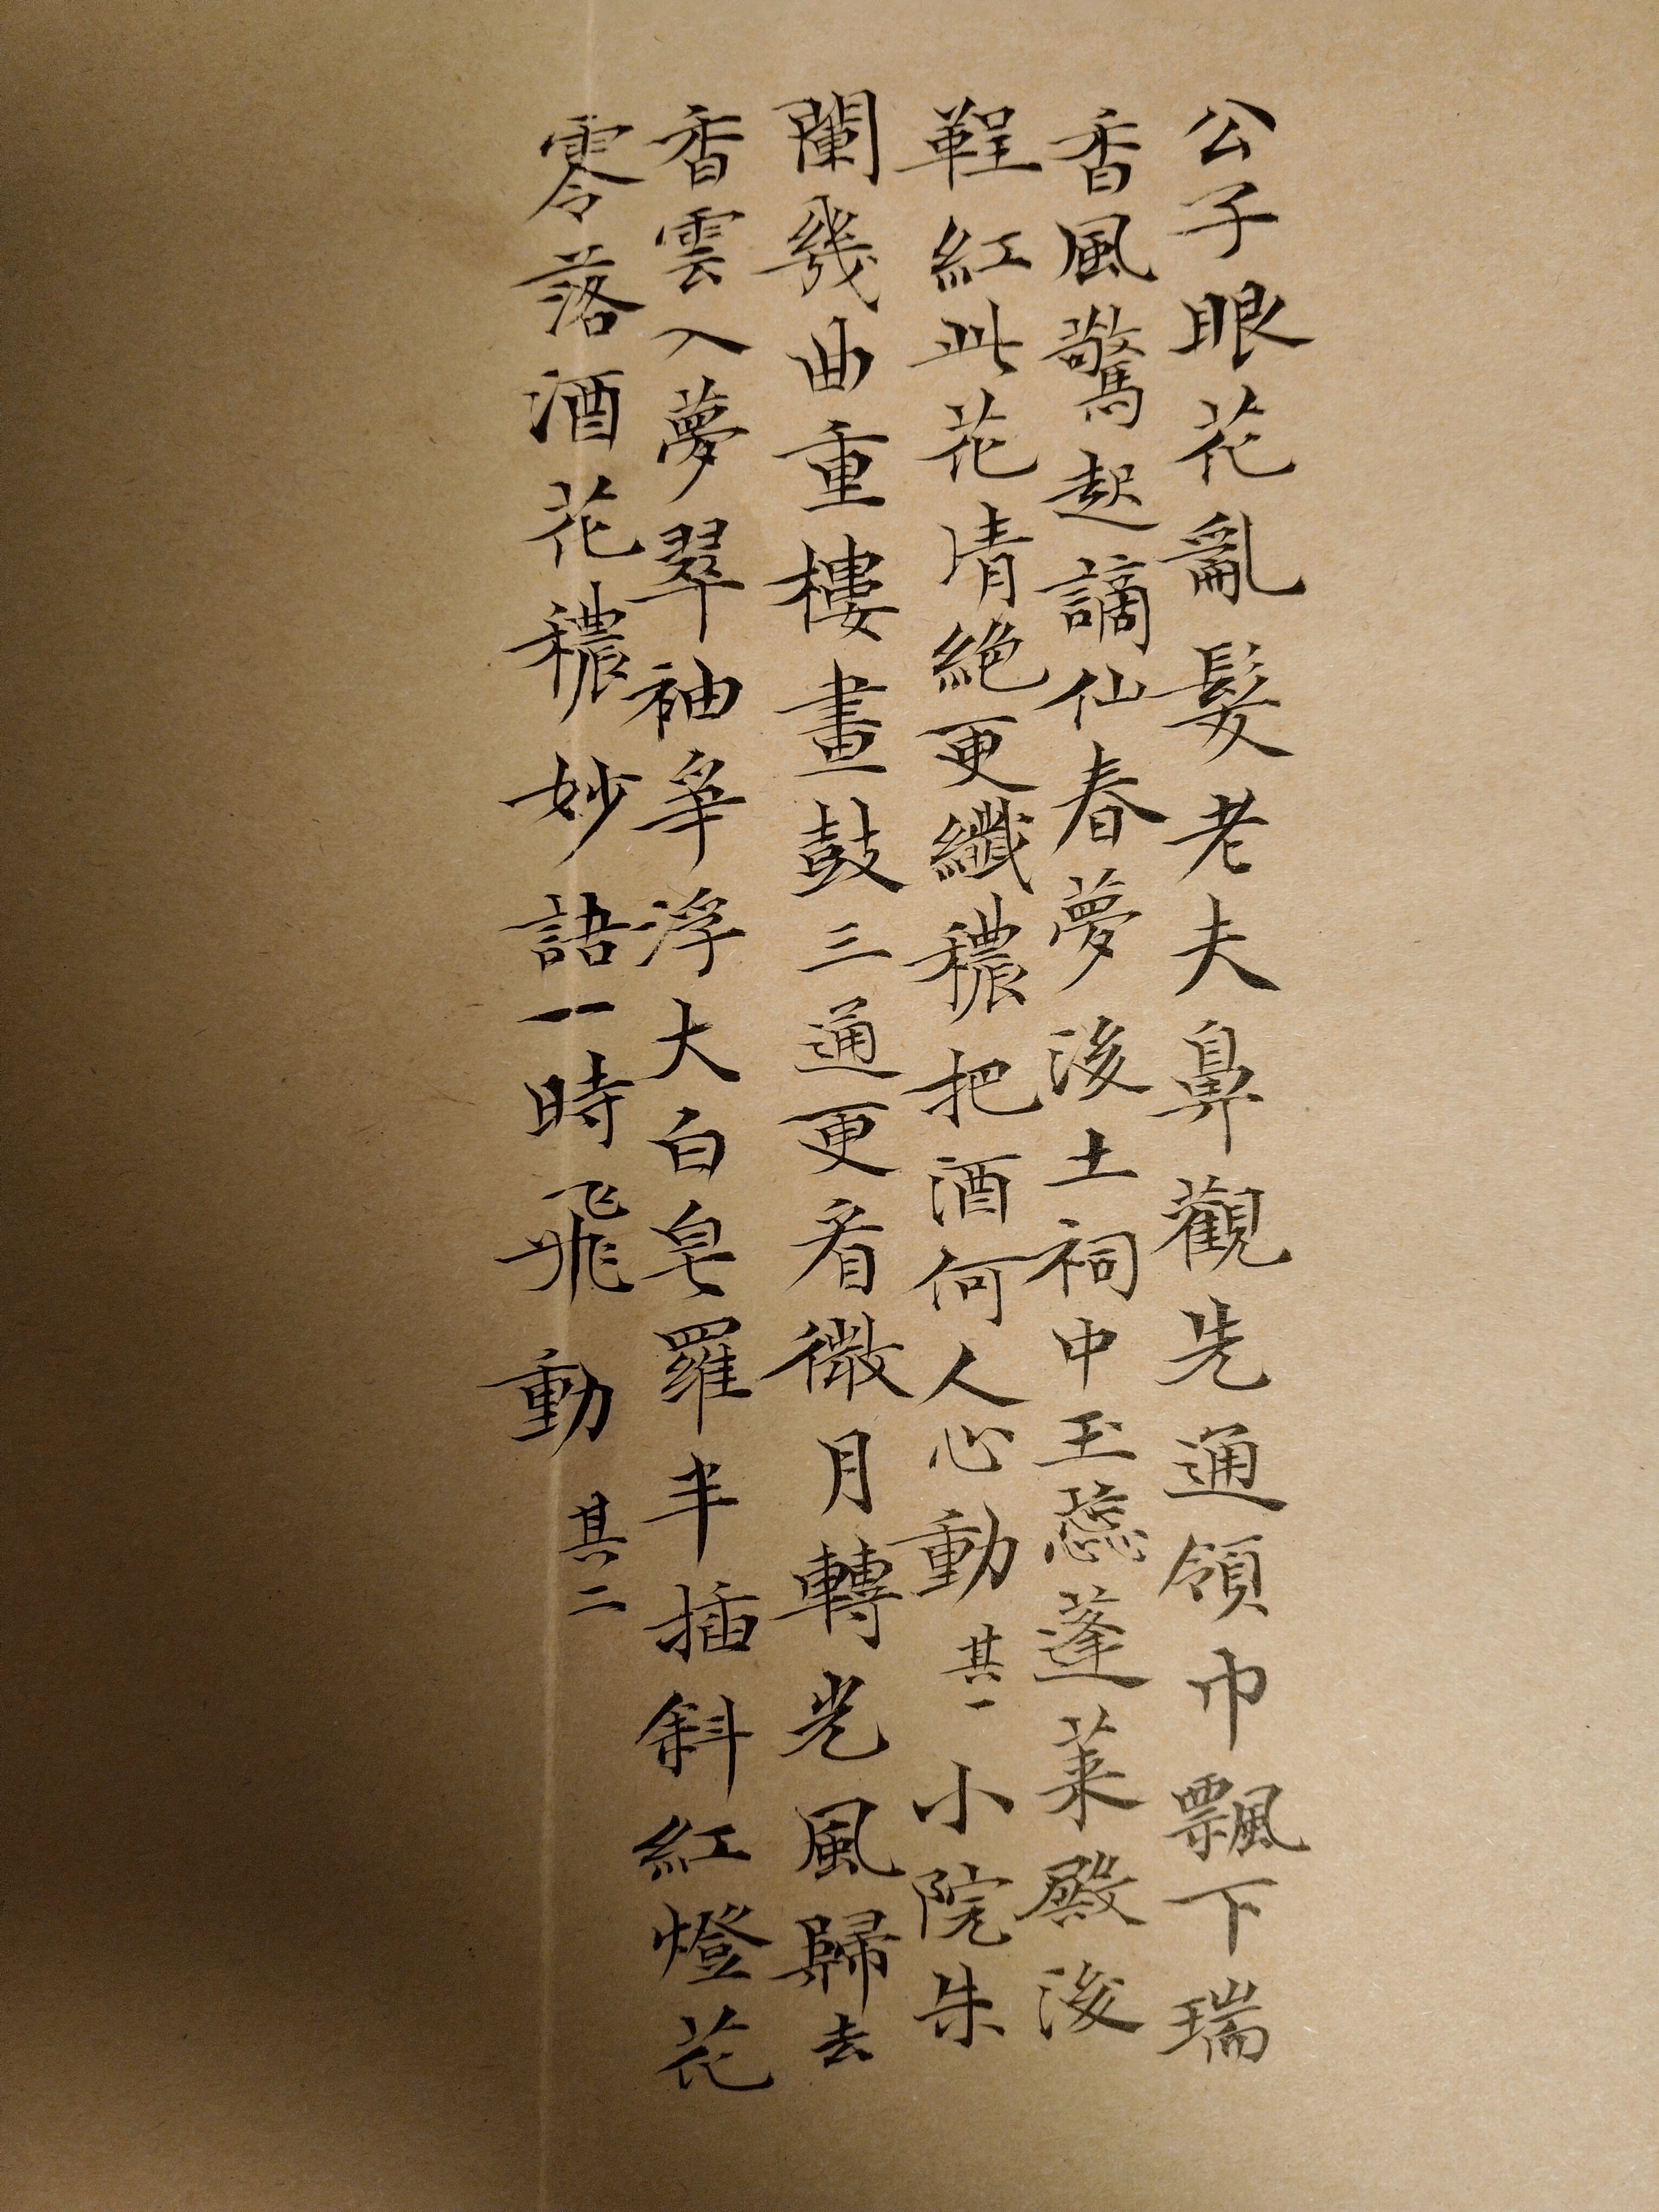 公子眼花亂髮老夫鼻觀先通領巾飄下瑞
香風驚起謫仙春夢後土祠中玉蕊蓬萊殿後
鞓紅此花清絕更纖穠把酒何人心動 其一 小院朱
闌幾曲重樓畫鼓三通更看微月轉光風歸去
香雲入夢翠袖爭浮大白皂羅半插斜紅燈花
零落酒花穠妙語一時飛動 其二